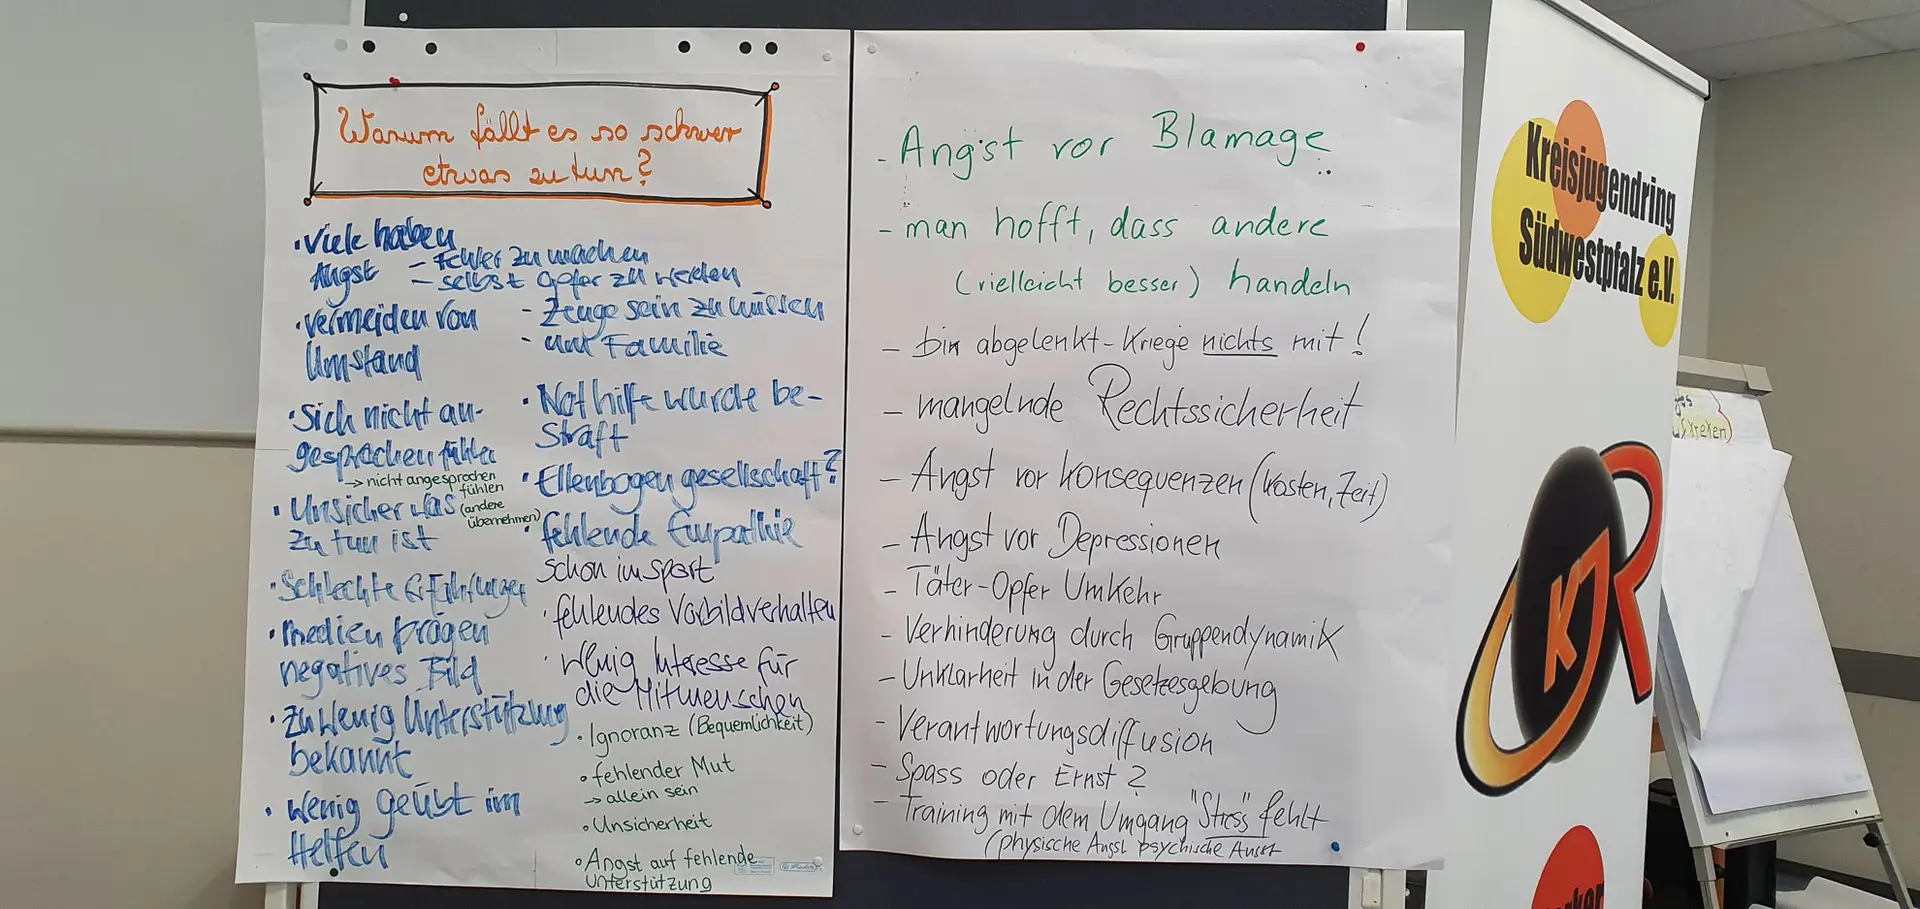 Warum fällt es so schwer
etwas zu tun?
• Viele haben
Angst
- Fehler zu machen
- selbst Opfer zu werden
- Zeuge sein zu müssen
- um Familie
• Vermeiden von
Umstand
• Sich nicht an-
gesprochen fühlen
→ nicht angesprochen
fühlen
(andere
übernehmen)
• Unsicher was
zu tun ist
• Schlechte Erfahrungen
• Medien prägen
negatives Bild
• Zu wenig Unterstützung
bekannt
• Wenig geübt im
Helfen
• Nothilfe wurde be-
straft
• Ellenbogengesellschaft?
• fehlende Empathie
schon im Sport
• fehlendes Vorbildverhalten
• wenig Interesse für
die Mitmenschen
• Ignoranz (Bequemlichkeit)
• fehlender Mut
→ allein sein
• Unsicherheit
• Angst auf fehlende
Unterstützung
- Angst vor Blamage
- man hofft, dass andere
(vielleicht besser) handeln
- bin abgelenkt - kriege nichts mit!
- mangelnde Rechtssicherheit
- Angst vor Konsequenzen (Kosten, Zeit)
- Angst vor Depressionen
- Täter-Opfer Umkehr
- Verhinderung durch Gruppendynamik
- Unklarheit in der Gesetzesgebung
- Verantwortungsdiffusion
- Spass oder Ernst?
- Training mit dem Umgang "Stress" fehlt
(physische Angst psychische Angst
Kreisjugendring
Südwestpfalz e.V.
KJR